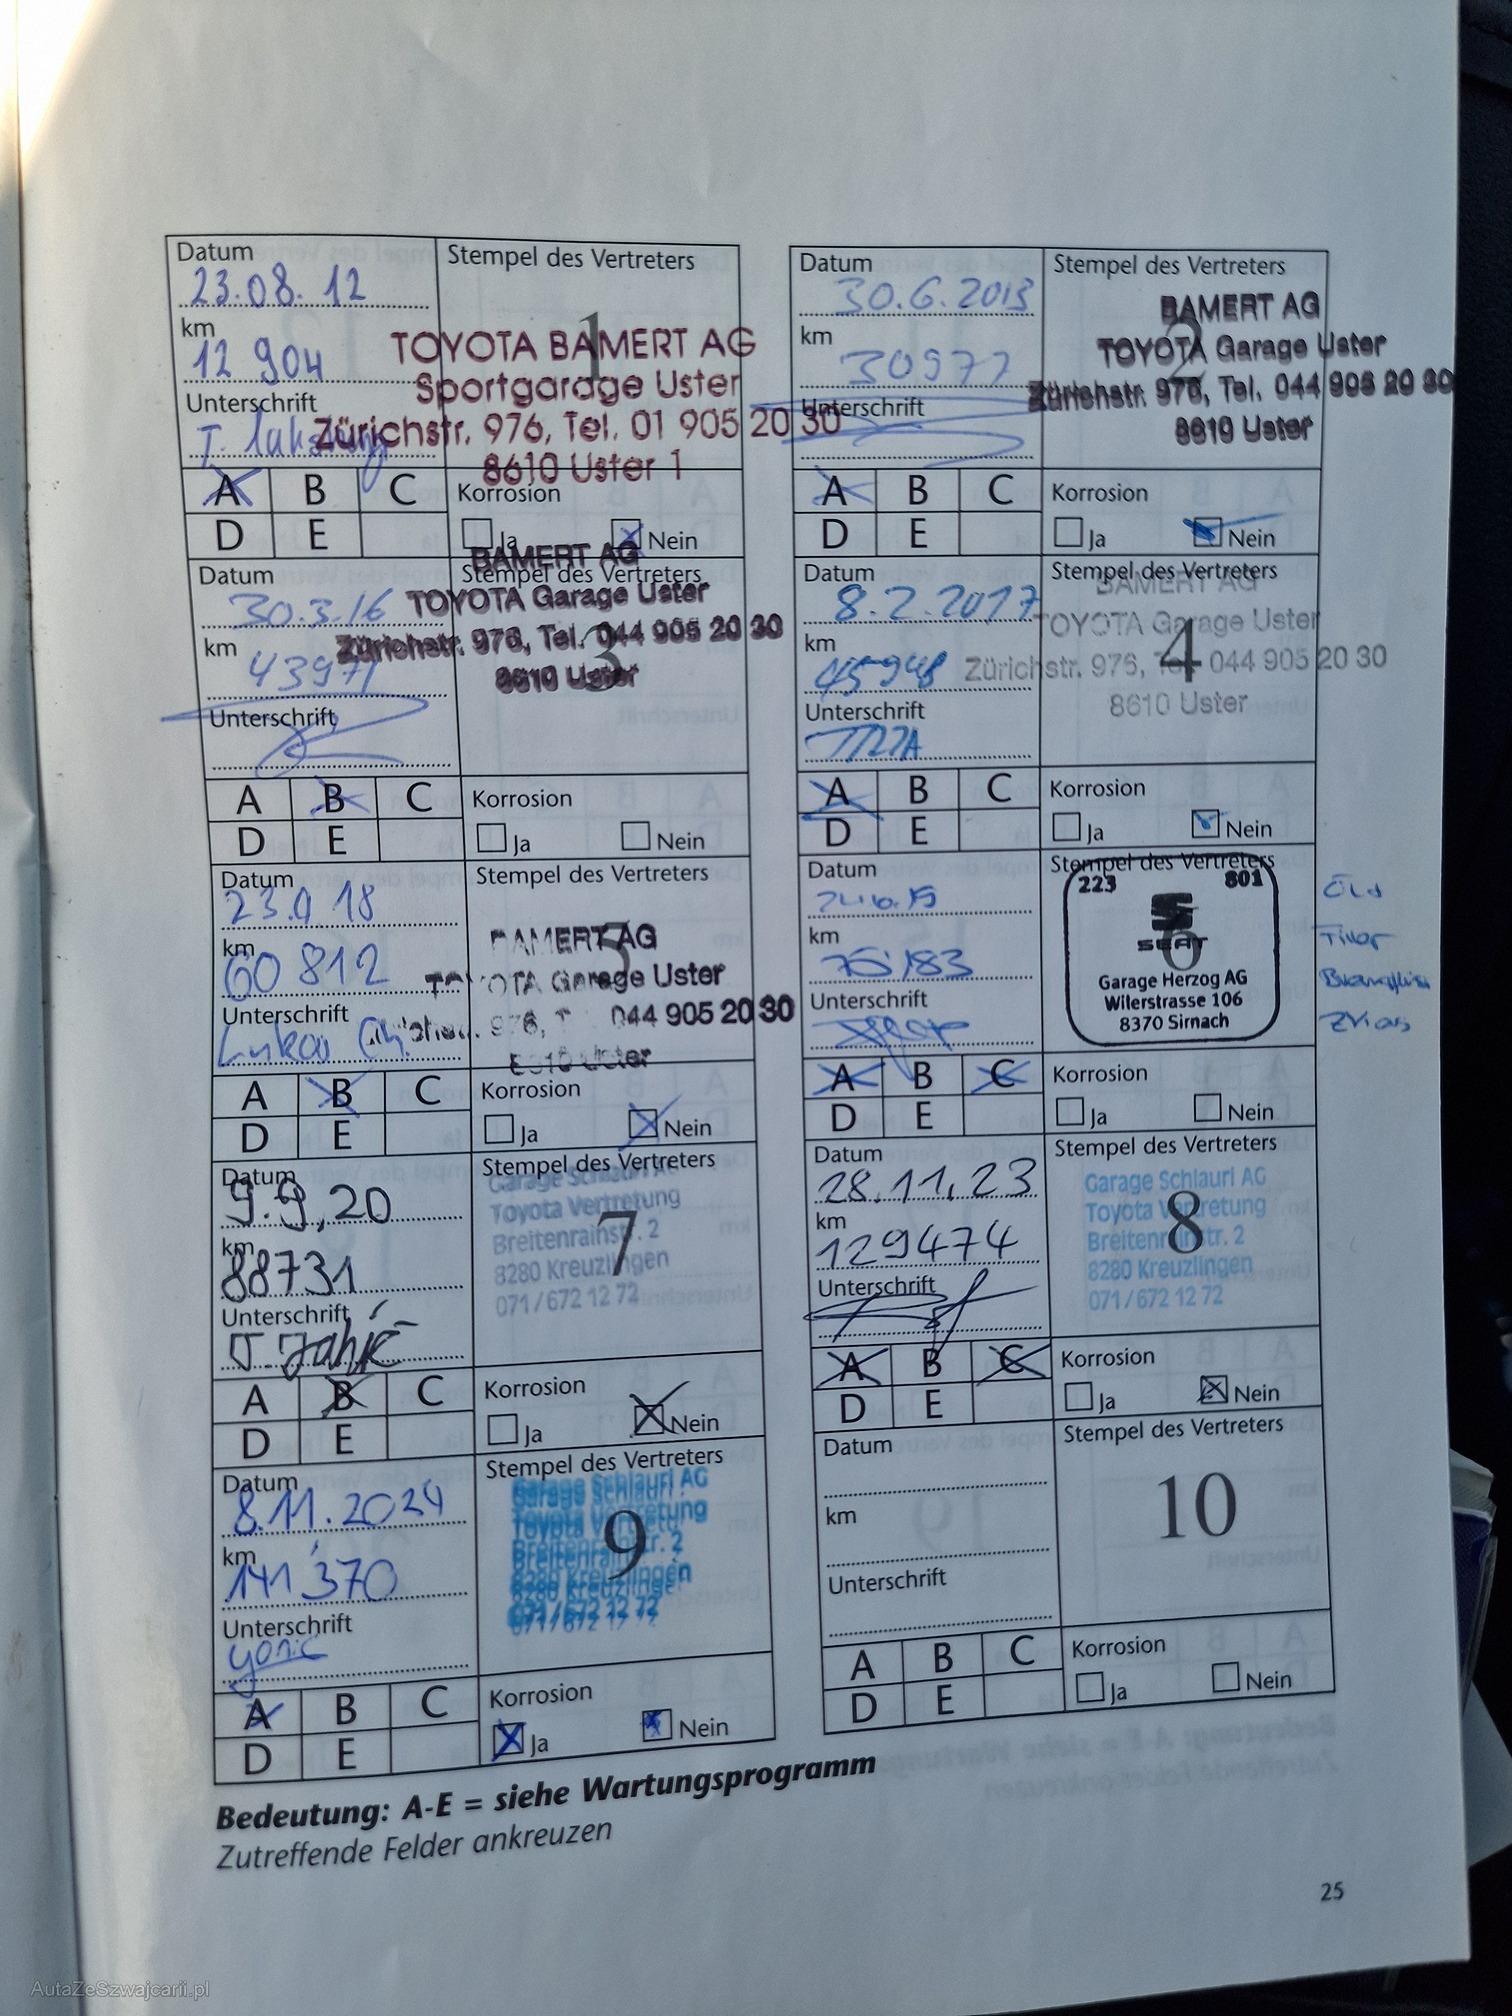 Datum
23.08.12
km
12 904
Unterschrift
Stempel des Vertreters
1
TOYOTA BAMERT AG
Sportgarage Uster
Zürichstr. 976, Tel. 01 905 20 30
8610 Uster 1
A B C
D E
Korrosion
Ja Nein
Datum
30.6.2013
km
30977
Unterschrift
Stempel des Vertreters
2
BAMERT AG
TOYOTA Garage Uster
Zürichstr. 976, Tel. 044 905 20 30
8610 Uster
A B C
D E
Korrosion
Ja Nein
Datum
30.3.16
km
43971
Unterschrift
Stempel des Vertreters
3
BAMERT AG
TOYOTA Garage Uster
Zürichstr. 976, Tel. 044 905 20 30
8610 Uster
A B C
D E
Korrosion
Ja Nein
Datum
8.2.2017
km
45948
Unterschrift
Stempel des Vertreters
4
BAMERT AG
TOYOTA Garage Uster
Zürichstr. 976, Tel. 044 905 20 30
8610 Uster
A B C
D E
Korrosion
Ja Nein
Datum
km
60 812
Unterschrift
Lukas
Stempel des Vertreters
5
BAMERT AG
TOYOTA Garage Uster
976, 044 905 20 30
8610 Uster
A B C
D E
Korrosion
Ja Nein
Datum
km
75'183
Unterschrift
Stempel des Vertreters
6
223 801
SEAT
Garage Herzog AG
Wilerstrasse 106
8370 Sirnach
A B C
D E
Korrosion
Ja Nein
Datum
9.9,20
km
88731
Unterschrift
Stempel des Vertreters
7
Garage Schlaurl AG
Toyota Vertretung
Breitenrainstr. 2
8280 Kreuzlingen
071/672 12 72
A B C
D E
Korrosion
Ja Nein
Datum
28.11.23
km
129474
Unterschrift
Stempel des Vertreters
8
Garage Schlaurl AG
Toyota Vertretung
Breitenrainstr. 2
8280 Kreuzlingen
071/672 12 72
A B C
D E
Korrosion
Ja Nein
Datum
8.11.2024
km
141'370
Unterschrift
Stempel des Vertreters
9
Garage Schlaurl AG
Toyota Vertretung
Breitenrainstr. 2
8280 Kreuzlingen
071/672 12 72
A B C
D E
Korrosion
Ja Nein
Datum
km
Unterschrift
Stempel des Vertreters
10
A B C
D E
Korrosion
Ja Nein
Bedeutung: A-E = siehe Wartungsprogramm
Zutreffende Felder ankreuzen
25
AutaZeSzwajcarii.pl